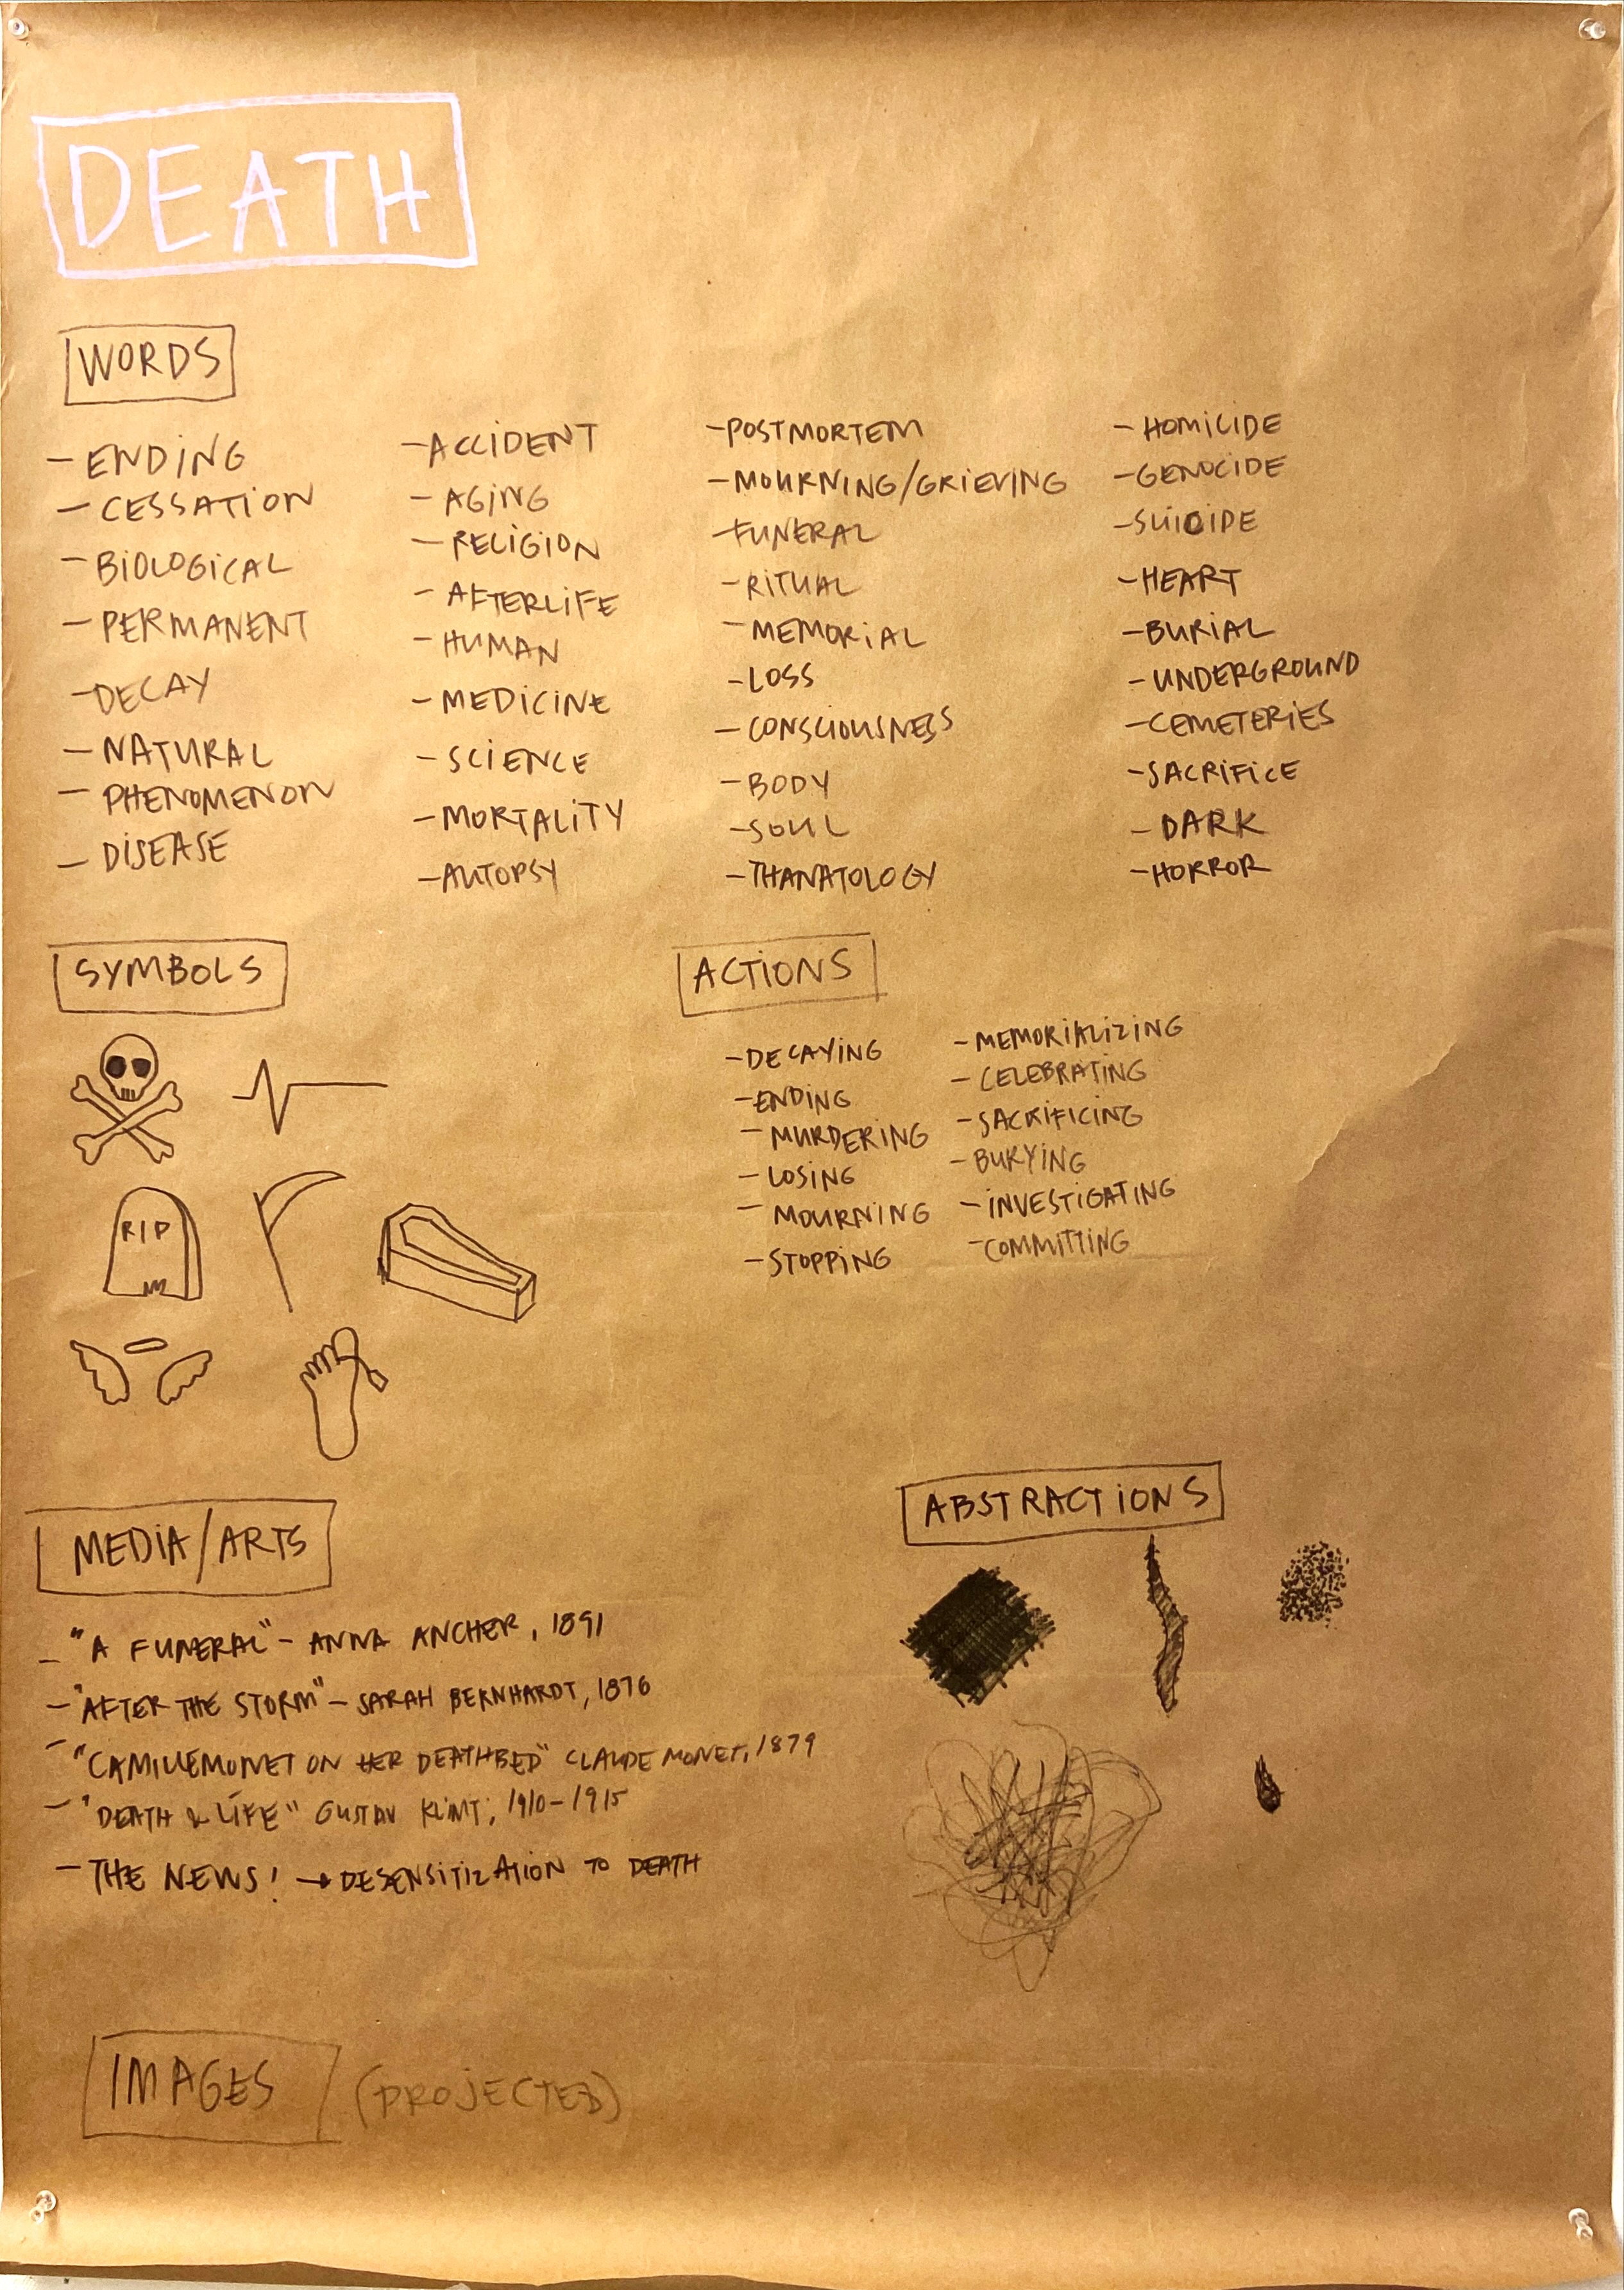 DEATH
WORDS
- ENDING
- CESSATION
- BIOLOGICAL
- PERMANENT
- DECAY
- NATURAL
- PHENOMENON
- DISEASE
- ACCIDENT
- AGING
- RELIGION
- AFTERLIFE
- HUMAN
- MEDICINE
- SCIENCE
- MORTALITY
- AUTOPSY
- POSTMORTEM
- MOURNING/GRIEVING
- FUNERAL
- RITUAL
- MEMORIAL
- LOSS
- CONSCIOUSNESS
- BODY
- SOUL
- THANATOLOGY
- HOMICIDE
- GENOCIDE
- SUICIDE
- HEART
- BURIAL
- UNDERGROUND
- CEMETERIES
- SACRIFICE
- DARK
- HORROR
SYMBOLS
RIP
ACTIONS
- DECAYING
- ENDING
- MURDERING
- LOSING
- MOURNING
- STOPPING
- MEMORIALIZING
- CELEBRATING
- SACRIFICING
- BURYING
- INVESTIGATING
- COMMITTING
MEDIA/ARTS
- "A FUNERAL" - ANNA ANCHER, 1891
- "AFTER THE STORM" - SARAH BERNHARDT, 1876
- "CAMILLE MONET ON HER DEATHBED" CLAUDE MONET, 1879
- "DEATH & LIFE" GUSTAV KLIMT, 1910-1915
- THE NEWS! → DESENSITIZATION TO DEATH
ABSTRACTIONS
IMAGES (PROJECTED)